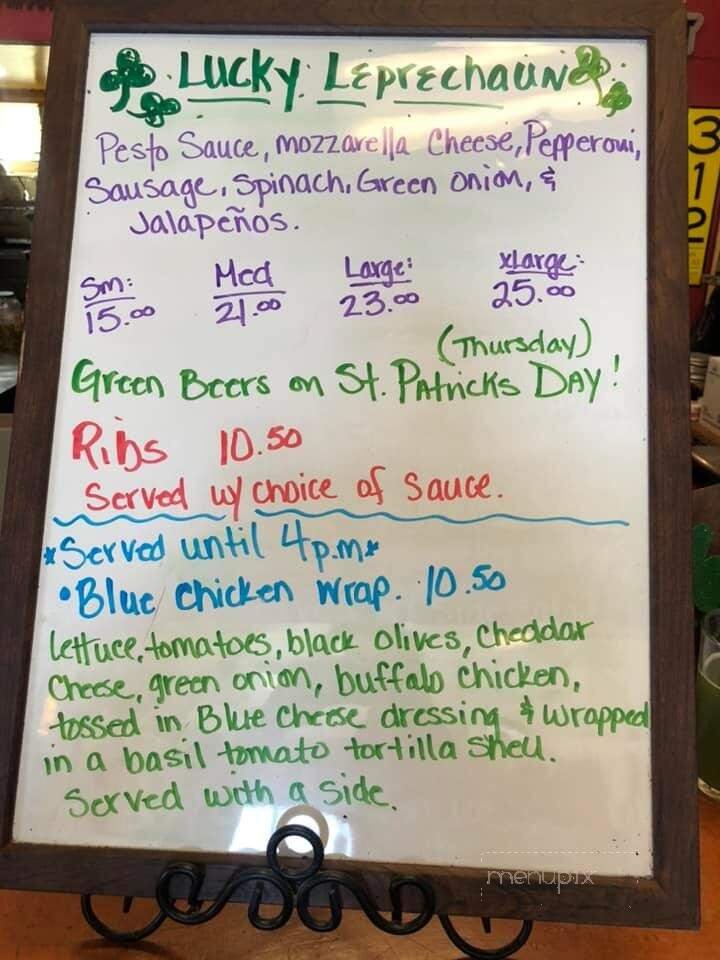 Lucky Leprechaun
Pesto Sauce, mozzarella Cheese, Pepperoni,
Sausage, Spinach, Green onion, &
Jalapeños.
Sm: Med Large: xLarge:
15.00 21.00 23.00 25.00
(Thursday)
Green Beers on St. Patricks Day!
Ribs 10.50
Served w/ choice of sauce.
*Served until 4p.m*
•Blue chicken wrap. 10.50
lettuce, tomatoes, black olives, cheddar
cheese, green onion, buffalo chicken,
tossed in Blue cheese dressing & wrapped
in a basil tomato tortilla shell.
Served with a side.
menupix
3
1
2